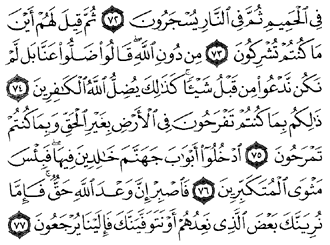 فِى ٱلْحَمِيمِ ثُمَّ فِى ٱلنَّارِ يُسْجَرُونَ ٧٢ ثُمَّ قِيلَ لَهُمْ أَيْنَ
مَا كُنتُمْ تُشْرِكُونَ ٧٣ مِن دُونِ ٱللَّهِ قَالُوا۟ ضَلُّوا۟ عَنَّا بَل لَّمْ
نَكُن نَّدْعُوا۟ مِن قَبْلُ شَيْـًٔا كَذَٰلِكَ يُضِلُّ ٱللَّهُ ٱلْكَـٰفِرِينَ ٧٤
ذَٰلِكُم بِمَا كُنتُمْ تَفْرَحُونَ فِى ٱلْأَرْضِ بِغَيْرِ ٱلْحَقِّ وَبِمَا كُنتُمْ
تَمْرَحُونَ ٧٥ ٱدْخُلُوٓا۟ أَبْوَٰبَ جَهَنَّمَ خَـٰلِدِينَ فِيهَا فَبِئْسَ
مَثْوَى ٱلْمُتَكَبِّرِينَ ٧٦ فَٱصْبِرْ إِنَّ وَعْدَ ٱللَّهِ حَقٌّ فَإِمَّا
نُرِيَنَّكَ بَعْضَ ٱلَّذِى نَعِدُهُمْ أَوْ نَتَوَفَّيَنَّكَ فَإِلَيْنَا يُرْجَعُونَ ٧٧